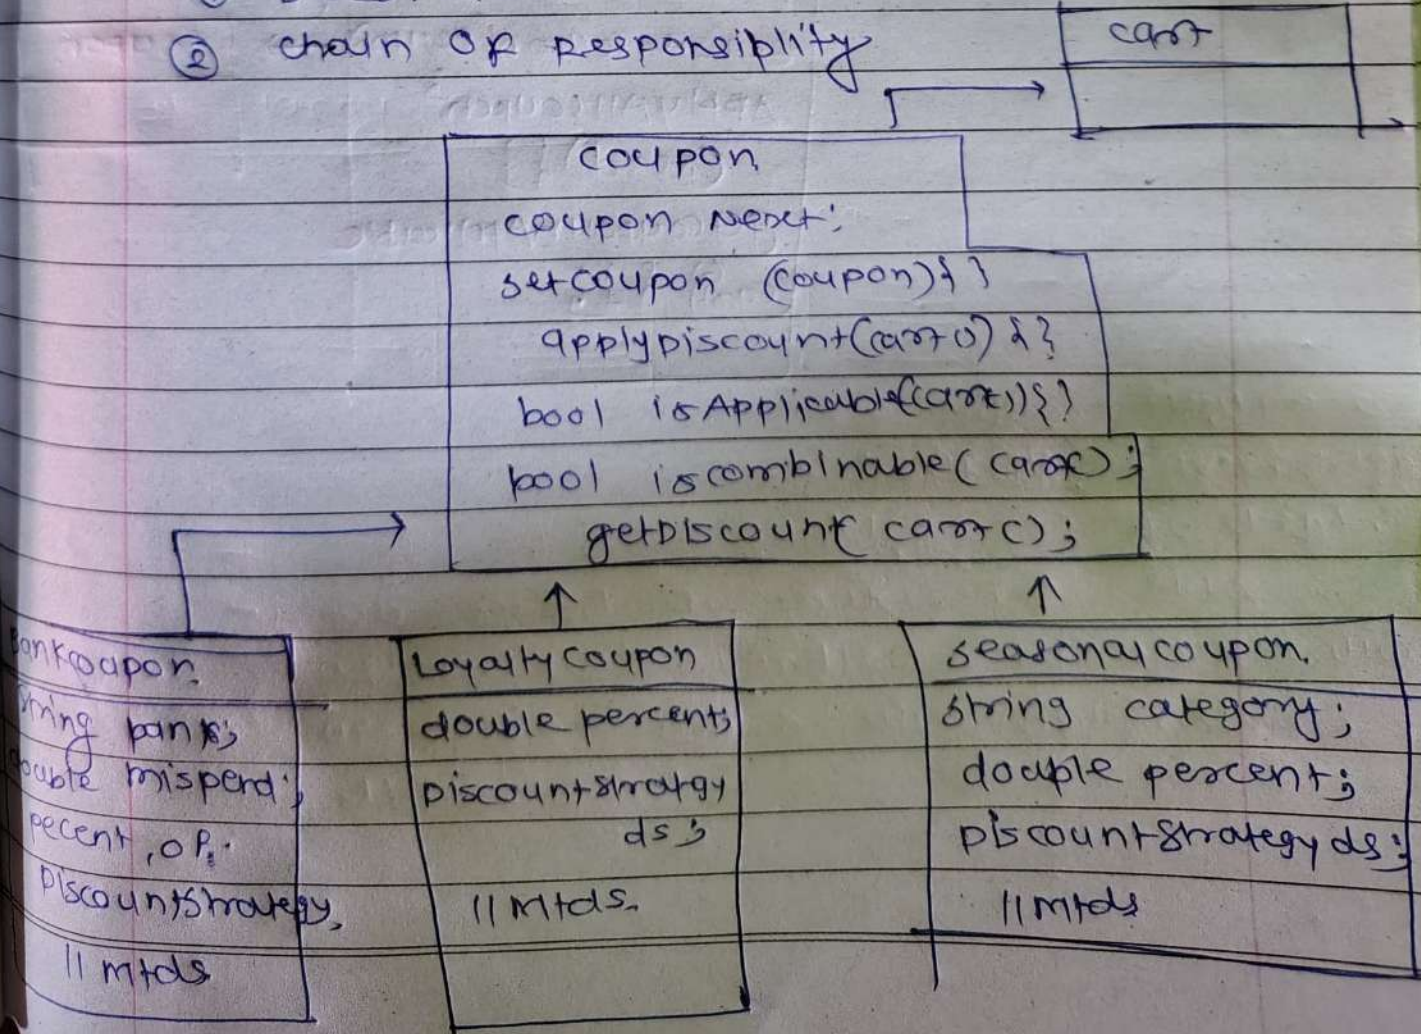 ② chain OF Responsiblity
cart
coupon
coupon Next;
setcoupon (coupon){ }
applyDiscount(cart c) { }
bool isApplicable(cart c)) { }
bool iscombinable( cart c);
getDiscount( cart c);
Bankcoupon.
string bank;
double mispend;
pecent,
DiscountStrategy.
// mtds
Loyaltycoupon
double percent;
Discountstratgy
ds;
// Mtds.
seasonalcoupon.
string category;
double percent;
DiscountStrategy ds;
// mtds